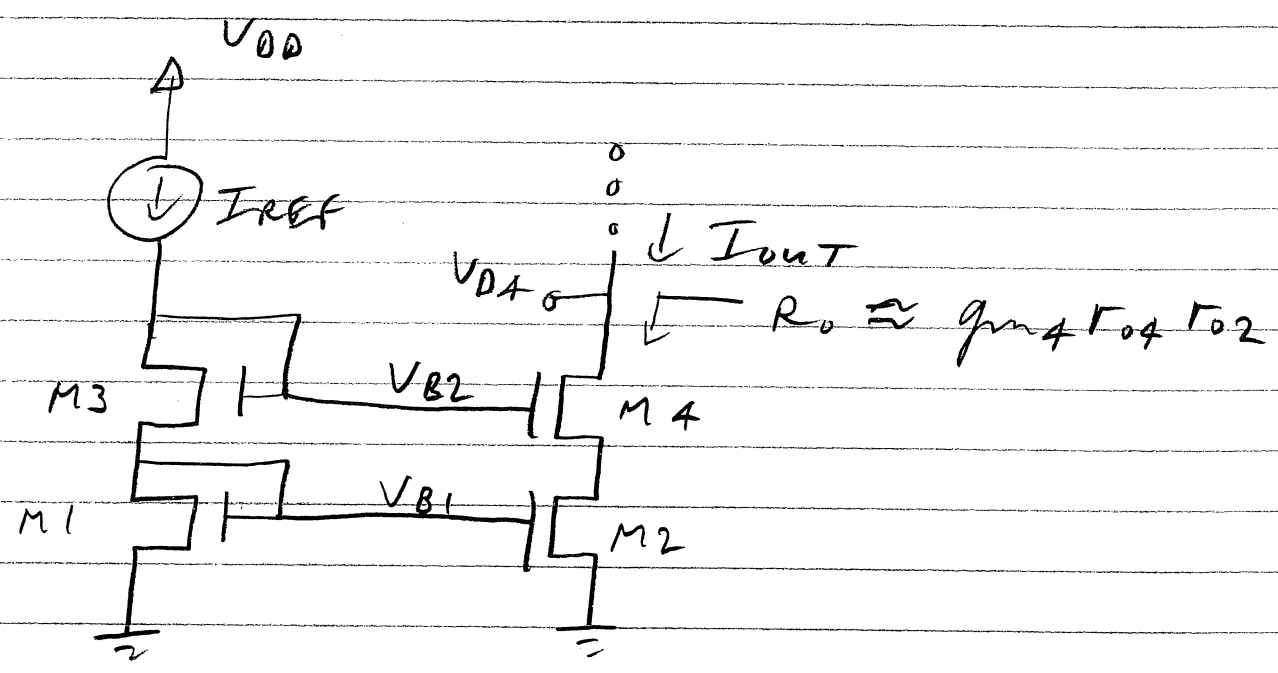 VDD
IREF
IOUT
VD4
Ro ≈ gm4 ro4 ro2
M3
VB2
M4
M1
VB1
M2